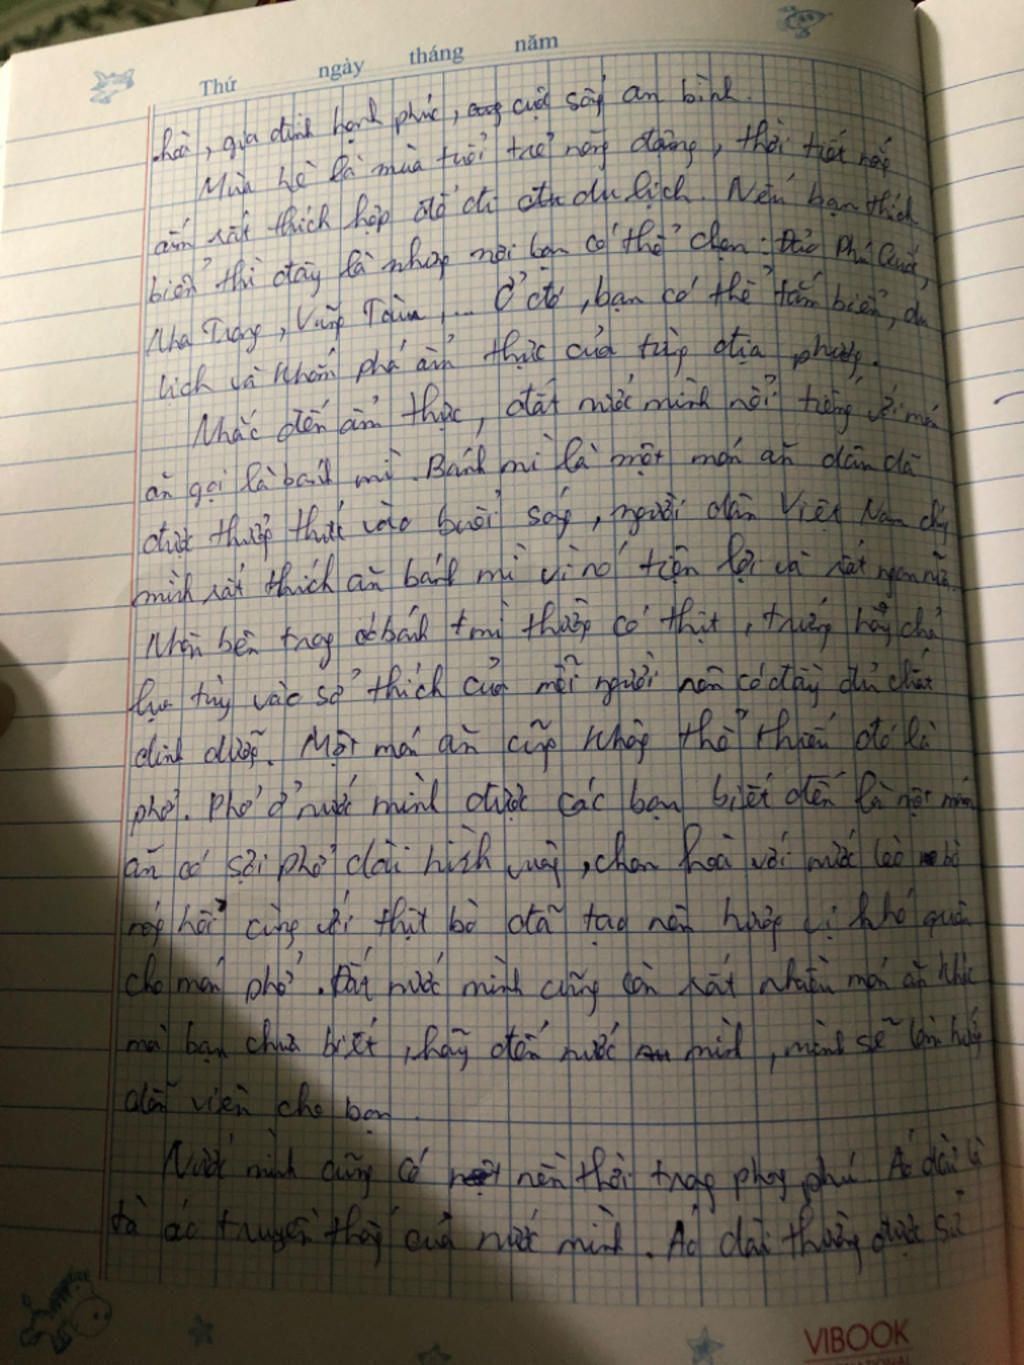 Thứ ngày tháng năm
hoà, gia đình hạnh phúc, cuộc sống an bình.
Mùa hè là mùa tuổi trẻ năng động, thời tiết nóng
ấm rất thích hợp để đi du lịch. Nếu bạn thích
biển thì đây là những nơi bạn có thể chọn: Đảo Phú Quốc,
Nha Trang, Vũng Tàu,... Ở đó, bạn có thể tắm biển, du
lịch và khám phá ẩm thực của từng địa phương.
Nhắc đến ẩm thực, đất nước mình nổi tiếng với món
ăn gọi là bánh mì. Bánh mì là một món ăn dân dã
được thưởng thức vào buổi sáng, người dân Việt Nam chúng
mình rất thích ăn bánh mì vì nó tiện lợi và rất ngon nữa.
Nhân bên trong ổ bánh mì thường có thịt, trứng hay chả
lụa tùy vào sở thích của mỗi người nên có đầy đủ chất
dinh dưỡng. Một món ăn cũng không thể thiếu đó là
phở. Phở ở nước mình được các bạn biết đến là một món
ăn có sợi phở dài hình vuông, chan hoà với nước lèo bò
nóng hổi cùng với thịt bò đã tạo nên hương vị khó quên
cho món phở. Đất nước mình cũng còn rất nhiều món ăn khác
mà bạn chưa biết, hãy đến nước mình, mình sẽ làm hướng
dẫn viên cho bạn.
Nước mình cũng có nền thời trang phong phú. Áo dài là
tà áo truyền thống của nước mình. Áo dài thường được sử
VIBOOK